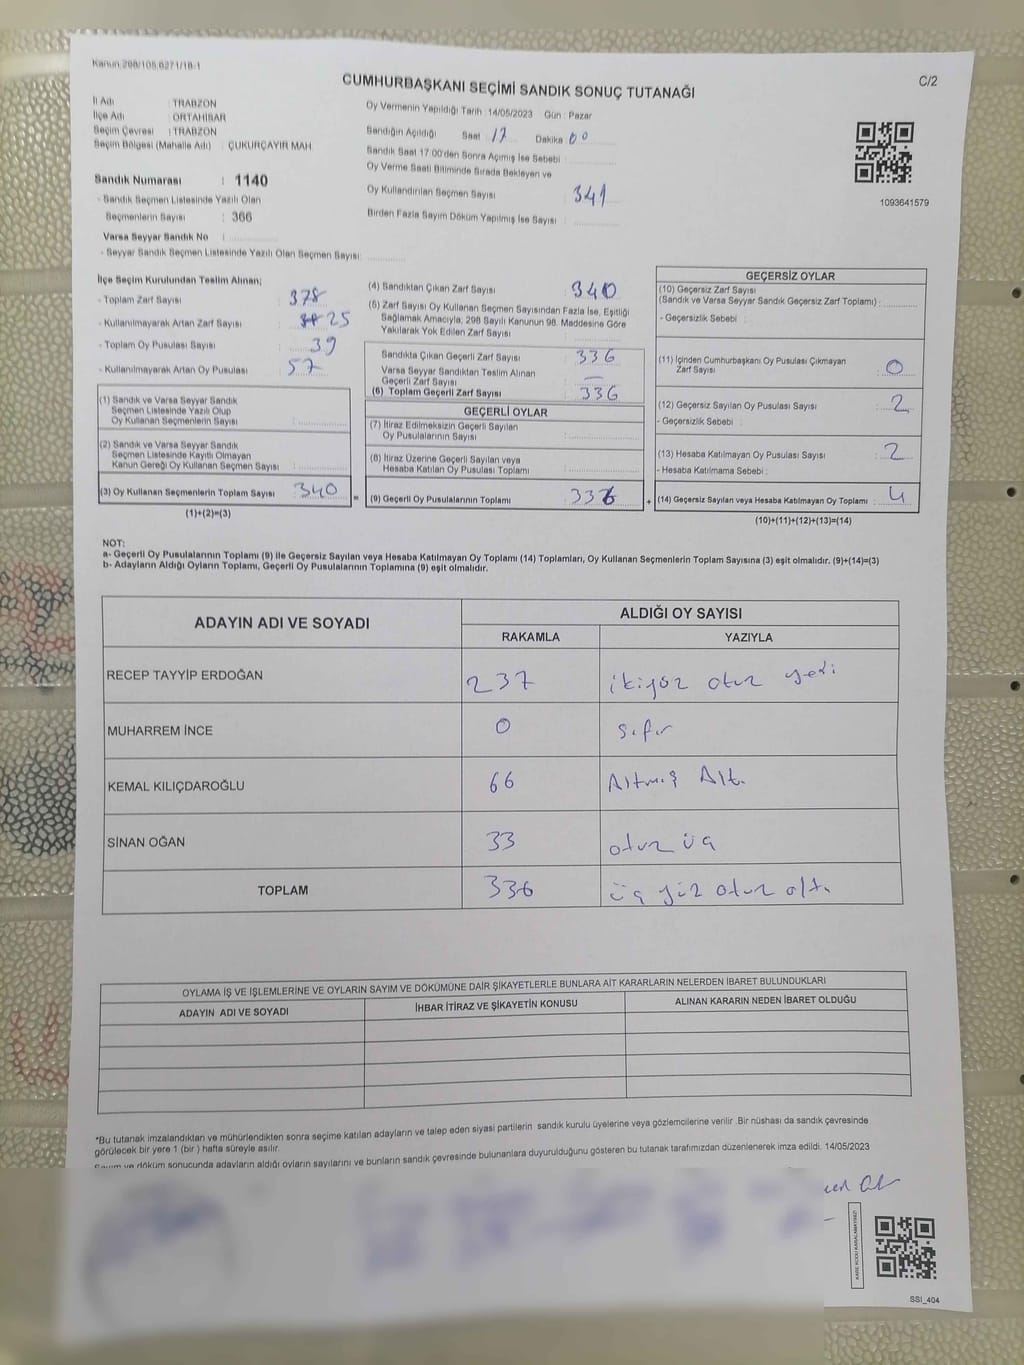 Kanun:298/105,6271/18-1
C/2
CUMHURBAŞKANI SEÇİMİ SANDIK SONUÇ TUTANAĞI
İl Adı : TRABZON
İlçe Adı : ORTAHİSAR
Seçim Çevresi : TRABZON
Seçim Bölgesi (Mahalle Adı) : ÇUKURÇAYIR MAH.
Sandık Numarası : 1140
- Sandık Seçmen Listesinde Yazılı Olan
Seçmenlerin Sayısı : 366
Varsa Seyyar Sandık No :
- Seyyar Sandık Seçmen Listesinde Yazılı Olan Seçmen Sayısı:
Oy Vermenin Yapıldığı Tarih :14/05/2023 Gün : Pazar
Sandığın Açıldığı Saat : 17 Dakika : 00
Sandık Saat 17:00'den Sonra Açımış İse Sebebi :
Oy Verme Saati Bitiminde Sırada Bekleyen ve
Oy Kullandırılan Seçmen Sayısı : 341
Birden Fazla Sayım Döküm Yapılmış İse Sayısı :
1093641579
İlçe Seçim Kurulundan Teslim Alınan;
- Toplam Zarf Sayısı : 378
- Kullanılmayarak Artan Zarf Sayısı : 25
- Toplam Oy Pusulası Sayısı : 39
- Kullanılmayarak Artan Oy Pusulası : 57
(1) Sandık ve Varsa Seyyar Sandık
Seçmen Listesinde Yazılı Olup
Oy Kullanan Seçmenlerin Sayısı :
(2) Sandık ve Varsa Seyyar Sandık
Seçmen Listesinde Kayıtlı Olmayan
Kanun Gereği Oy Kullanan Seçmen Sayısı :
(3) Oy Kullanan Seçmenlerin Toplam Sayısı : 340
(1)+(2)=(3)
(4) Sandıktan Çıkan Zarf Sayısı : 340
(5) Zarf Sayısı Oy Kullanan Seçmen Sayısından Fazla İse, Eşitliği
Sağlamak Amacıyla; 298 Sayılı Kanunun 98. Maddesine Göre
Yakılarak Yok Edilen Zarf Sayısı :
Sandıkta Çıkan Geçerli Zarf Sayısı : 336
Varsa Seyyar Sandıktan Teslim Alınan
Geçerli Zarf Sayısı : —
(6) Toplam Geçerli Zarf Sayısı : 336
GEÇERLİ OYLAR
(7) İtiraz Edilmeksizin Geçerli Sayılan
Oy Pusulalarının Sayısı :
(8) İtiraz Üzerine Geçerli Sayılan veya
Hesaba Katılan Oy Pusulası Toplamı :
= (9) Geçerli Oy Pusulalarının Toplamı : 336 +
GEÇERSİZ OYLAR
(10) Geçersiz Zarf Sayısı
(Sandık ve Varsa Seyyar Sandık Geçersiz Zarf Toplamı) :
- Geçersizlik Sebebi :
(11) İçinden Cumhurbaşkanı Oy Pusulası Çıkmayan
Zarf Sayısı : 0
(12) Geçersiz Sayılan Oy Pusulası Sayısı : 2
- Geçersizlik Sebebi :
(13) Hesaba Katılmayan Oy Pusulası Sayısı : 2
- Hesaba Katılmama Sebebi :
(14) Geçersiz Sayılan veya Hesaba Katılmayan Oy Toplamı : 4
(10)+(11)+(12)+(13)=(14)
NOT:
a- Geçerli Oy Pusulalarının Toplamı (9) ile Geçersiz Sayılan veya Hesaba Katılmayan Oy Toplamı (14) Toplamları, Oy Kullanan Seçmenlerin Toplam Sayısına (3) eşit olmalıdır. (9)+(14)=(3)
b- Adayların Aldığı Oyların Toplamı, Geçerli Oy Pusulalarının Toplamına (9) eşit olmalıdır.
ADAYIN ADI VE SOYADI
ALDIĞI OY SAYISI
RAKAMLA YAZIYLA
RECEP TAYYİP ERDOĞAN 237 ikiyüz otuz yedi
MUHARREM İNCE 0 sıfır
KEMAL KILIÇDAROĞLU 66 Altmış Altı
SİNAN OĞAN 33 otuz üç
TOPLAM 336 üç yüz otuz altı
OYLAMA İŞ VE İŞLEMLERİNE VE OYLARIN SAYIM VE DÖKÜMÜNE DAİR ŞİKAYETLERLE BUNLARA AİT KARARLARIN NELERDEN İBARET BULUNDUKLARI
ADAYIN ADI VE SOYADI İHBAR İTİRAZ VE ŞİKAYETİN KONUSU ALINAN KARARIN NEDEN İBARET OLDUĞU
*Bu tutanak imzalandıktan ve mühürlendikten sonra seçime katılan adayların ve talep eden siyasi partilerin sandık kurulu üyelerine veya gözlemcilerine verilir .Bir nüshası da sandık çevresinde
görülecek bir yere 1 (bir ) hafta süreyle asılır.
Sayım ve döküm sonucunda adayların aldığı oyların sayılarını ve bunların sandık çevresinde bulunanlara duyurulduğunu gösteren bu tutanak tarafımızdan düzenlenerek imza edildi. 14/05/2023
KARE KODU KARALAMAYINIZ!
SSI_404